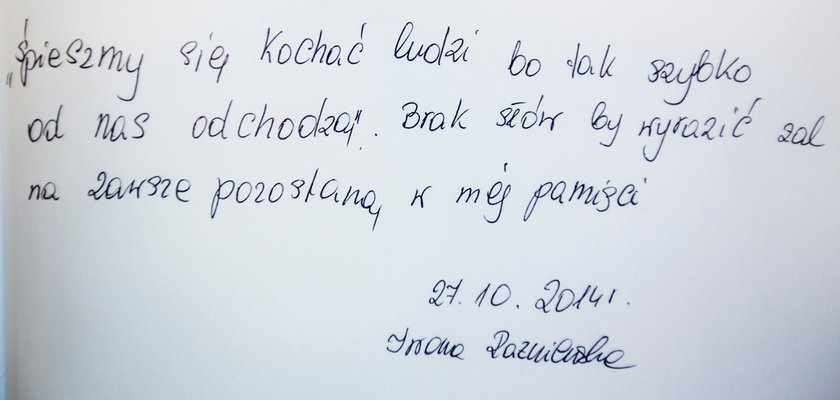 „Śpieszmy się kochać ludzi bo tak szybko
od nas odchodzą". Brak słów by wyrazić żal
na zawsze pozostaną w mej pamięci
27.10.2014r.
Iwona